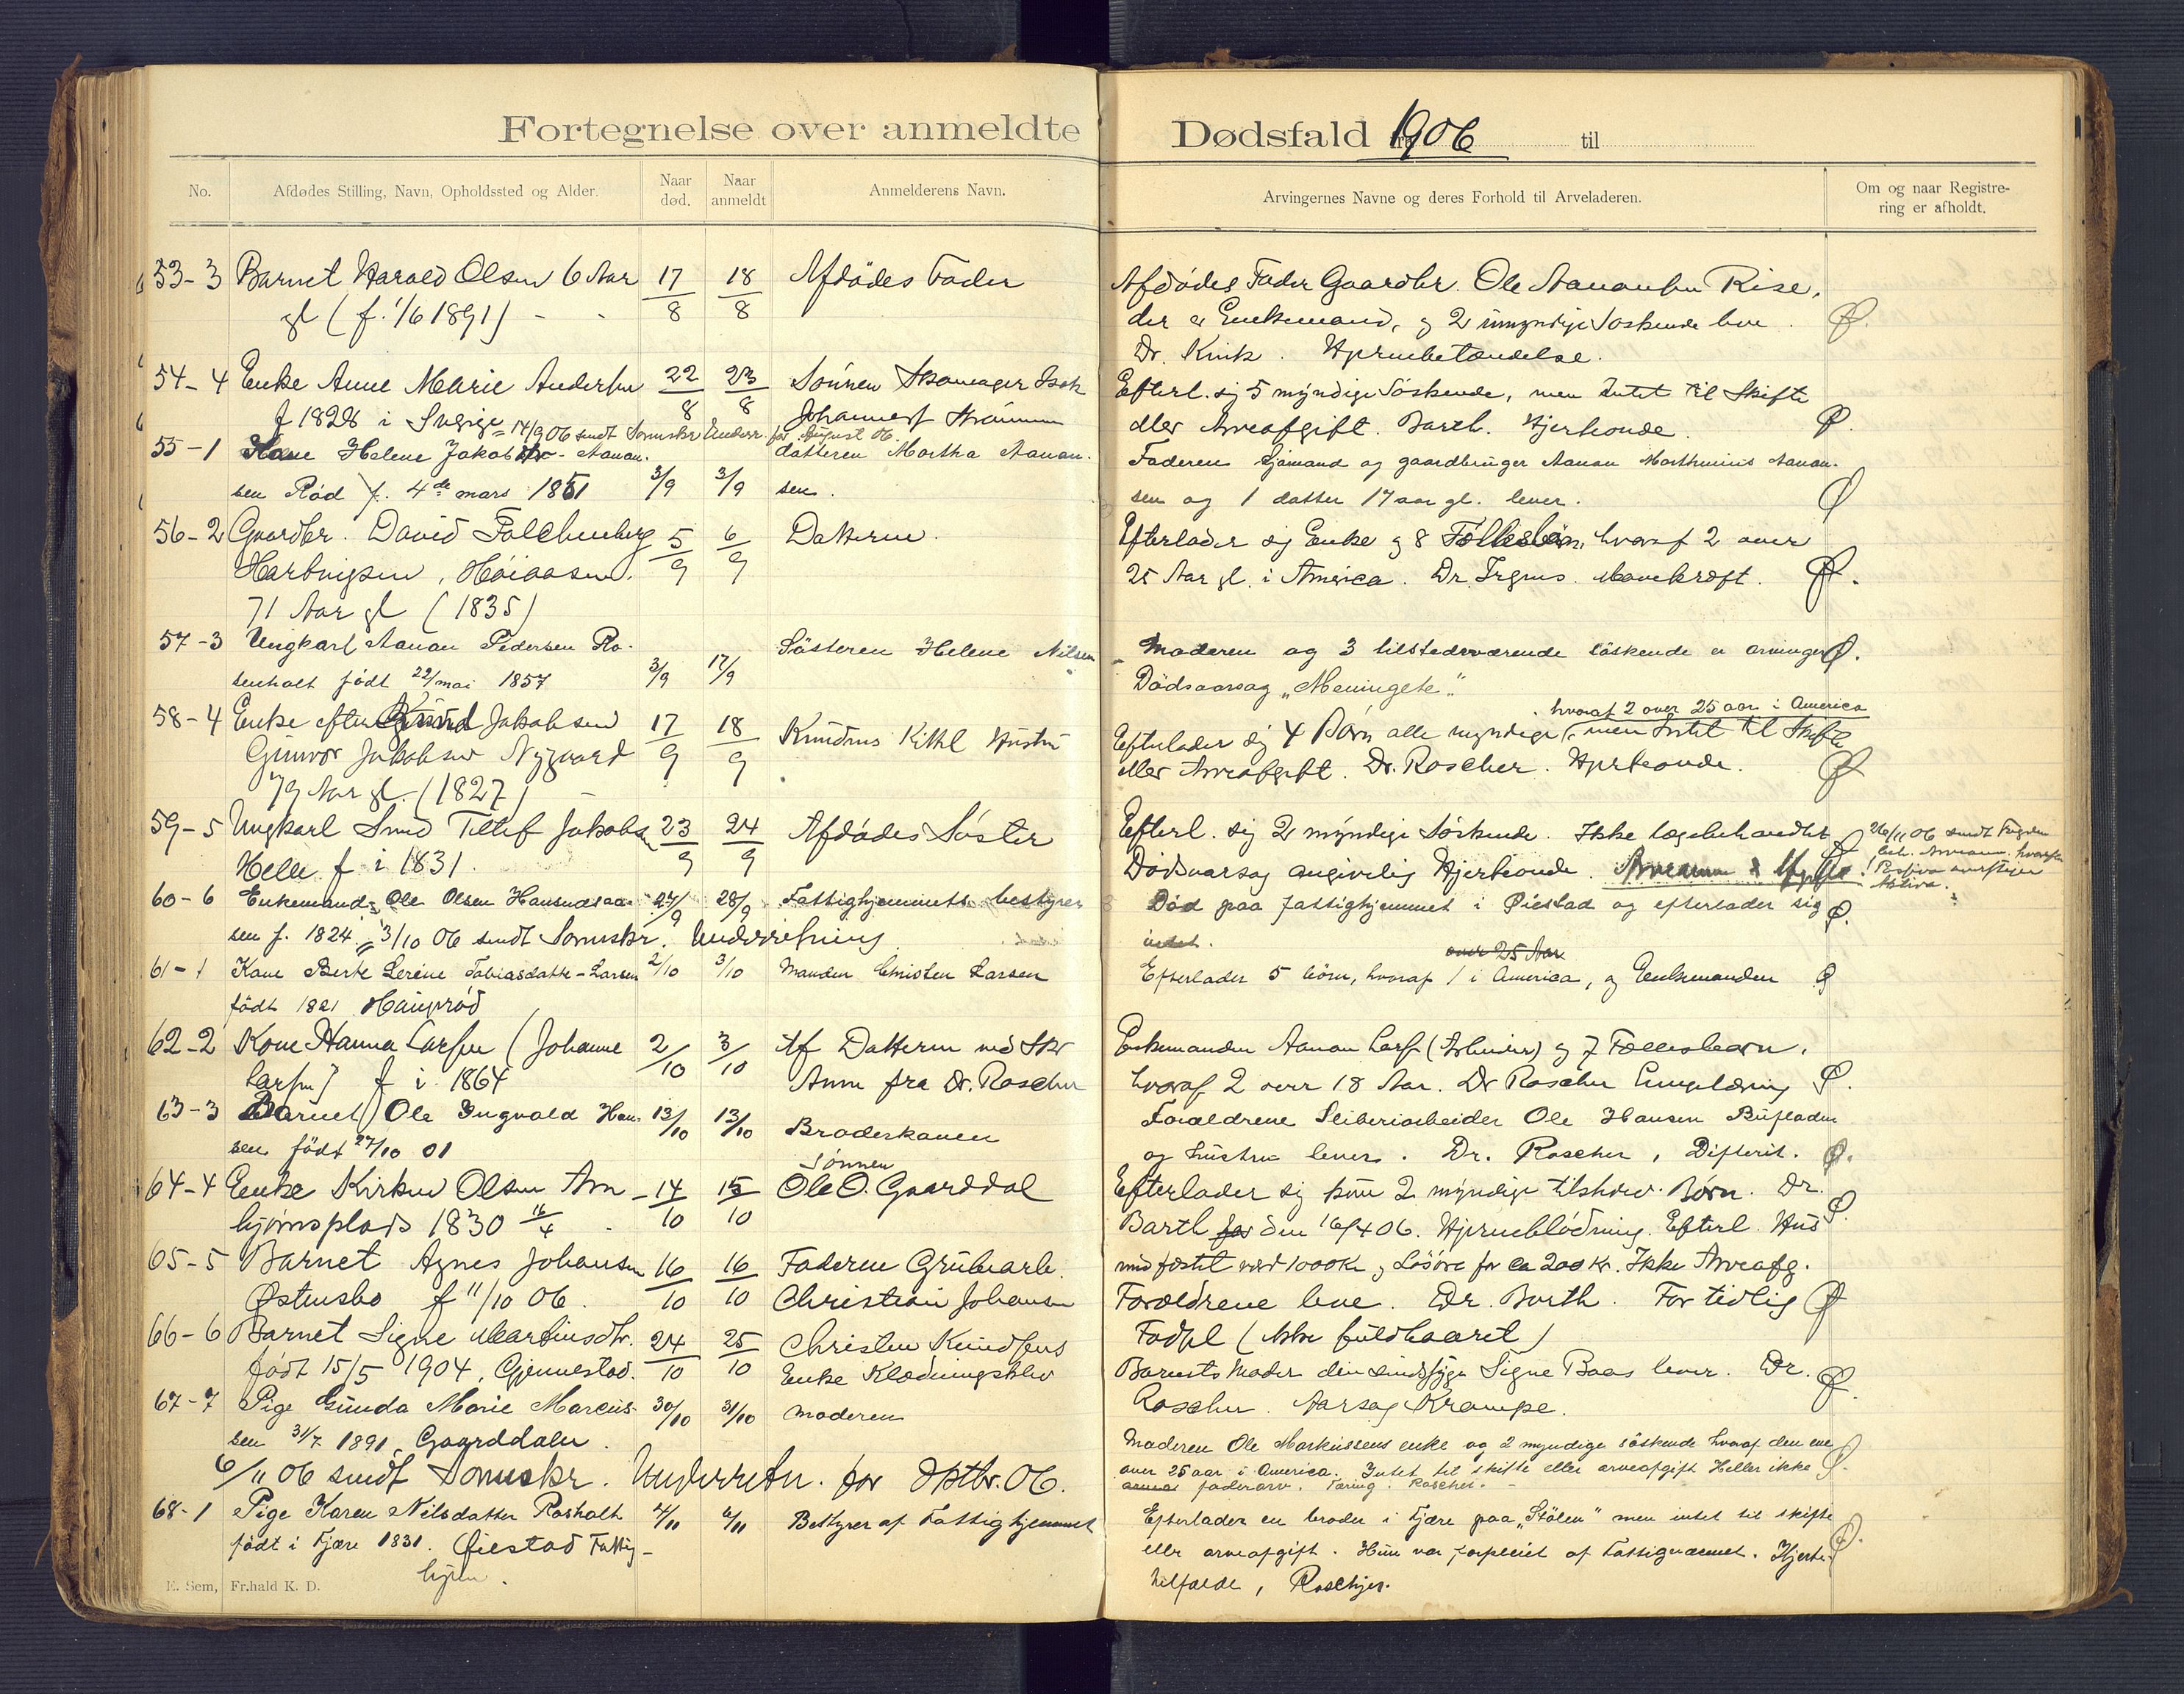 Fortegnelse over anmeldte Dødsfald 1906 til
No.
Afdødes Stilling, Navn, Opholdssted og Alder.
Naar død.
Naar anmeldt
Anmelderens Navn.
Arvingernes Navne og deres Forhold til Arveladeren.
Om og naar Registrering er afholdt.
53-3 Barnet Harald Olsen 6 Aar 17/8 18/8 Afdødes Fader
gl (f. 1/6 1891)
Afdødes Fader Gaardbr. Ole Aanonsen Rise,
der er Enkemand, og 2 umyndige Søskende leve.
Dr. Kink. Hjernebetændelse.
54-4 Enke Anne Marie Andersen 22/8 23/8 Sønnen Skomager Isak
f 1828 i Sverige Johannes
14/9 06 sendt Sorenskr Underr. for August 06.
Efterl. sig 5 myndige Søskende, men Intet til Skifte
eller Arveafgift. Barth. Hjerteonde.
55-1 Kone Helene Jakobsdtr - Aanon- 3/9 3/9 datteren Martha Aanon-
sen Rød f. 4de mars 1851 sen.
Faderen Sjømand og gaardbruger Aanon Marthinius Aanon-
sen og 1 datter 17 aar gl. lever.
56-2 Gaardbr. David Falchenberg 5/9 6/9 Datteren.
Hartvigsen, Høiaasen.
71 Aar gl (1835)
Efterlader sig Enke og 8 Fællesbørn, hvoraf 2 over
25 Aar gl. i America. Dr. Mavekræft.
57-3 Ungkarl Aanon Pedersen Ro- 3/9 17/9 Søsteren Helene Nilsen
senholt født 22/mai 1857
Moderen og 3 tilstedeværende søskende er arvinger.
Dødsaarsag "Meningete".
58-4 Enke efter Jakobsen 17/9 18/9 Knudens Kittil Hustru
Gunvor Jakobsen Nygaard
79 Aar gl. (1827)
hvoraf 2 over 25 aar i America
Efterlader sig 4 Børn alle myndige, men Intet til Skifte
eller Arveafgift. Dr. Roscher. Hjerteonde.
59-5 Ungkarl Smed Tellef Jakobsen 23/9 24/9 Afdødes Søster
Helle f i 1831.
Efterl. sig 2 myndige Søskende. Ikke lægebehandlet
Dødsaarsag angivelig Hjerteonde.
26/11 06 sendt
60-6 Enkemand Ole Olsen Hausnesaa- 27/9 28/9 Fattighjemmets bestyrer
sen f. 1824. 3/10 06 sendt Sorenskr. Underretning
Død paa fattighjemmet i Øiestad og efterlader sig
intet.
61-1 Kone Berte Serine Tobiasdatte-Larsen 2/10 3/10 Manden Christen Larsen
født 1821
over 25 Aar
Efterlader 5 börn, hvoraf 1 i America, og Enkemanden
62-2 Kone Hanna Larsen (Johanne 2/10 3/10 Af Datteren ved
Larsen) f i 1864 Anm fra Dr. Roscher
Enkemanden Aanon Larsen (Arbeider) og 7 Fællesbørn,
hvoraf 2 over 18 Aar. Dr Roscher
63-3 Barnet Ole Ingvald Han- 13/10 13/10 Broderkonen
sen født 27/10 01
Forældrene Sliberiarbeider Ole Hansen Bufladen
og hustru lever. Dr. Roscher, Difterit.
64-4 Enke Kirsten Olsen 14/10 15/10 Sønnen
Ole O. Gaarddal
1830 16/4
Efterlader sig kun 2 myndige tilstedev. Børn. Dr.
Barth for den 16/4 06. Hjerneblødning. Efterl. Hus
med fæstet værd 1000 Kr og Løsøre for ca 200 Kr. Ikke Arveafg.
65-5 Barnet Agnes Johansen 16/10 16/10 Faderen Grubearb.
Østensbo f 11/10 06. Christian Johansen
Forældrene leve. Dr. Barth. For tidlig
Fødsel (ikke fuldbaaret)
66-6 Barnet Signe Martinsdtr. 24/10 25/10 Christen Knudsens
født 15/5 1904, Gjennestad. Enke Klædningsklev
Barnets Moder den sindssyge Signe Baas lever. Dr.
Roscher. Aarsag Krampe.
67-7 Pige Gunda Marie Marcus- 30/10 31/10 Moderen
sen 31/7 1891, Gaarddalen.
Moderen Ole Markussens enke og 2 myndige søskende hvoraf den ene
over 25 aar i America. Intet til skifte eller arveafgift Heller ikke
fadersarv. Tæring. Roscher.
6/11 06 sendt Sorenskr. Underretn. for Oktbr. 06.
68-1 Pige Karen Nilsdatter Rosholt 4/11 6/11 Bestyrer af Fattighjemmet
født i Fjære 1831. Øiestad Fattig-
hjem.
Efterlader en broder i Fjære paa "Stölen" men intet til skifte
eller arveafgift. Hun var forpleiet af Fattigvæsenet. Hjerte-
tilfælde, Roschjer.
E. Sem, Fr.hald K. D.